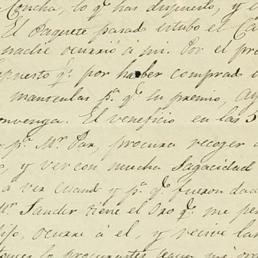 Concha, lo q.e has dispuesto, y e
El Paquete parado estubo el Ca
nadie ocurrió á mi. Por el pro
puesto q.e por haber comprad
mantenlas p.a q.e su premio, Ay
convenga. El veneficio en las 5
p.a Mr. Pax, procura recoger
y ver con mucha sagacidad
a ver cuant y p.a q.e fueron dad
Mr. Sander tiene el Oro q.e me per
ocurre á el, y recive la